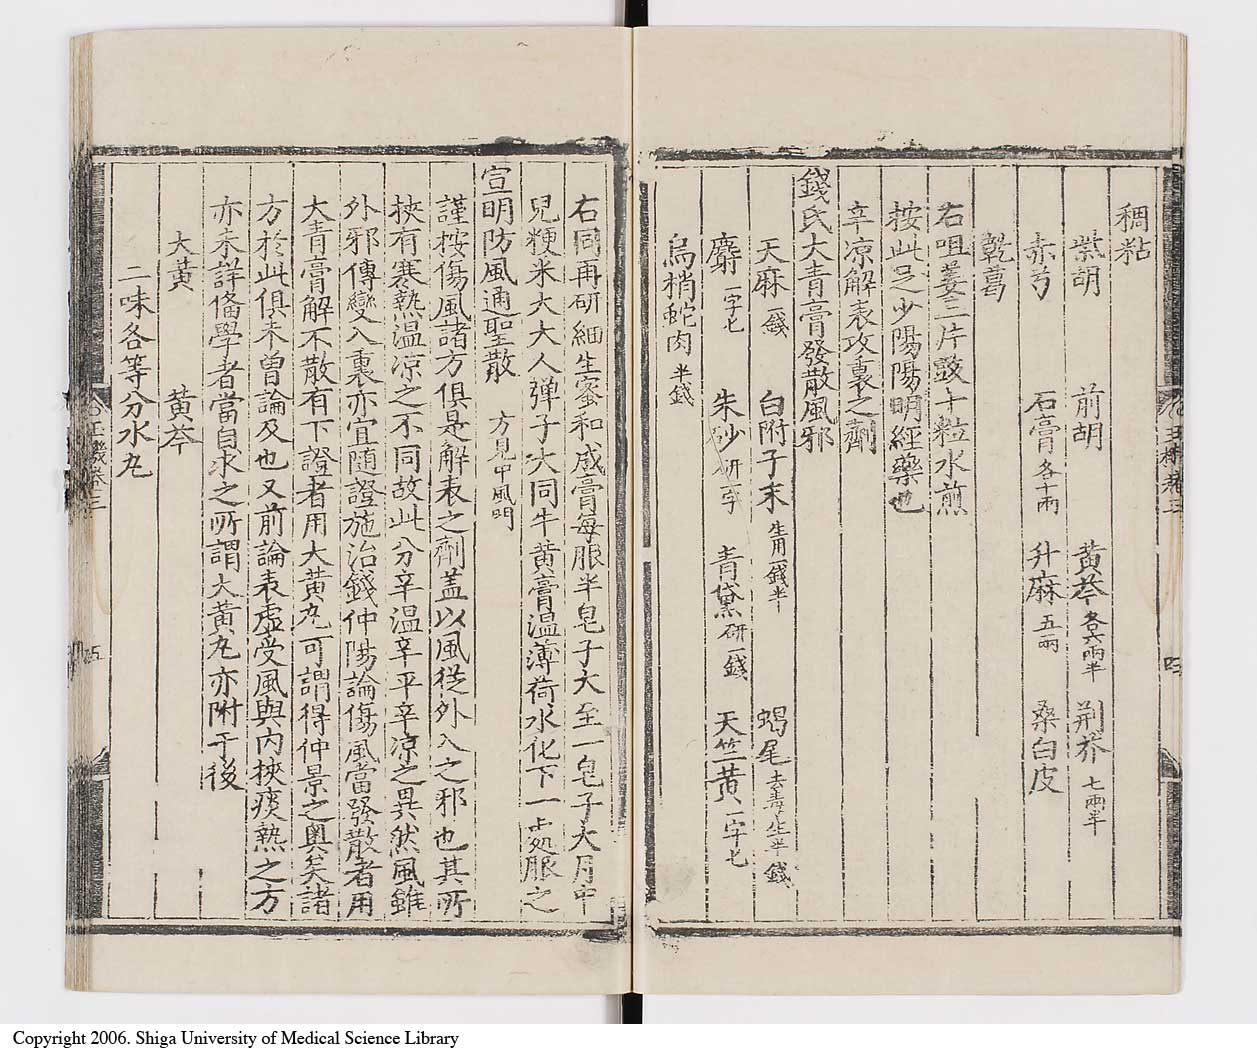 稠粘
柴胡 前胡 黃芩各六兩半 荆芥七兩半
赤芍 石膏各十兩 升麻五兩 桑白皮
乾葛
右咀姜三片豉十粒水煎
按此足少陽陽明經藥也
辛凉解表攻裏之劑
錢氏大青膏發散風邪
天麻一錢 白附子末生用一錢半 蝎尾去毒生半錢
麝一字匕 朱砂研一字 青黛研一錢 天竺黃一字匕
烏梢蛇肉半錢
右同再研細生蜜和成膏每服半皂子大至一皂子大月中
兒粳米大大人彈子大同牛黃膏温薄荷水化下一處服之
宣明防風通聖散 方見中風門
謹按傷風諸方俱是解表之劑盖以風從外入之邪也其所
挾有寒熱温凉之不同故此分辛温辛平辛凉之異然風雖
外邪傳變入裏亦宜隨證施治錢仲陽論傷風當發散者用
大青膏解不散有下證者用大黃丸可謂得仲景之奧矣諸
方於此俱未曾論及也又前論表虛受風與内挾痰熱之方
亦未詳俻學者當自求之所謂大黃丸亦附于後
大黃 黃芩
二味各等分水丸
玉機卷三
五